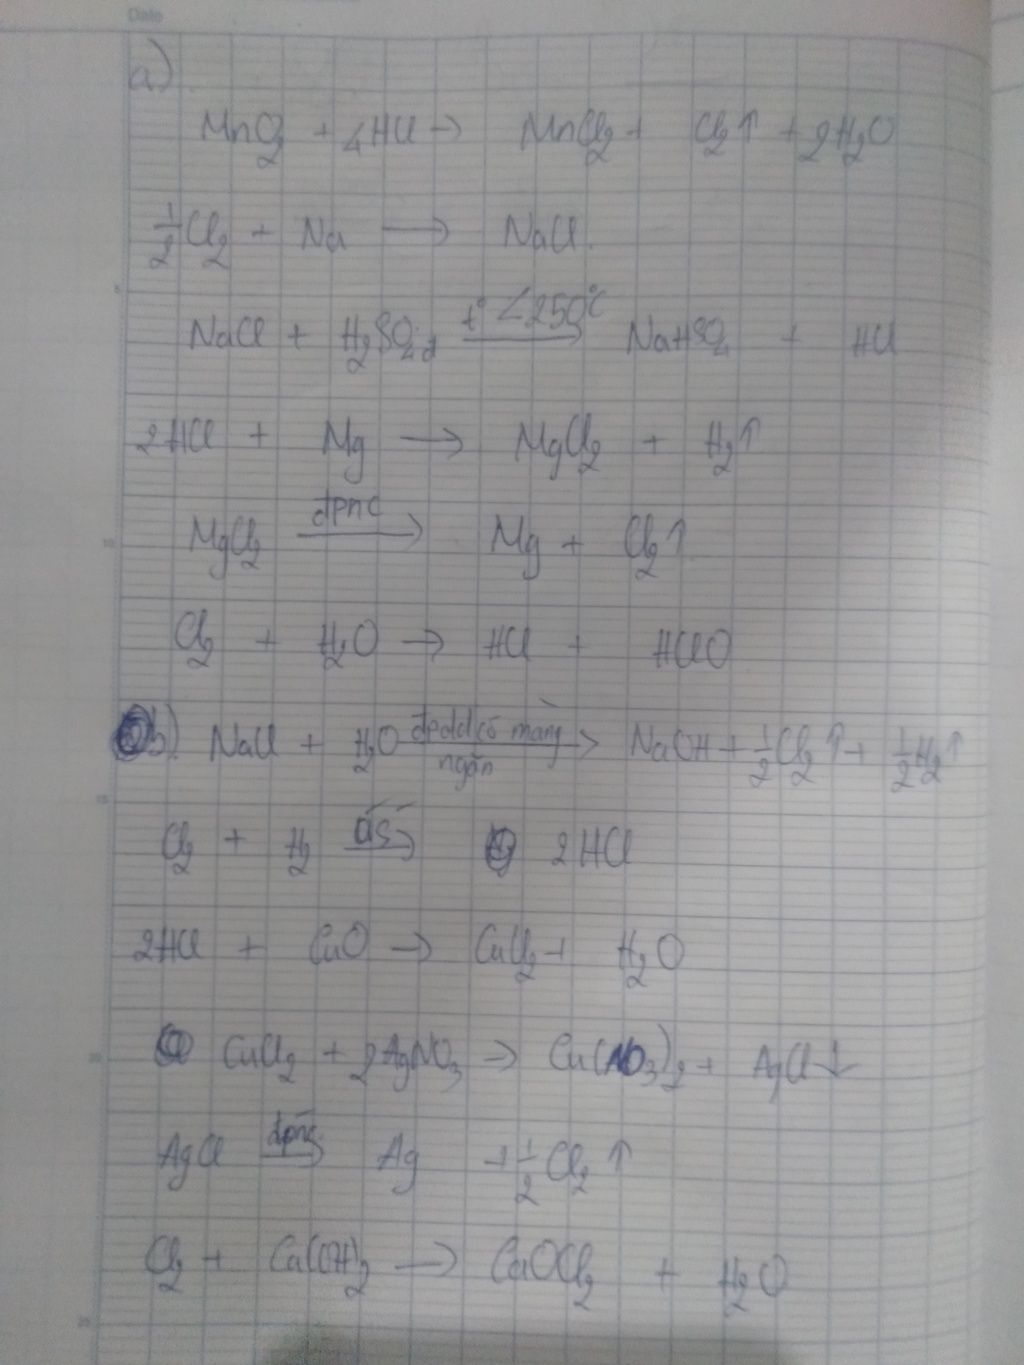 Date
a)
MnO2 + 4HCl → MnCl2 + Cl2↑ + 2H2O
1/2 Cl2 + Na → NaCl.
NaCl + H2SO4đ t° <250°C → NaHSO4 + HCl
2HCl + Mg → MgCl2 + H2↑
MgCl2 đpnc → Mg + Cl2↑
Cl2 + H2O → HCl + HClO
b) NaCl + H2O đpdd có màng ngăn → NaOH + 1/2 Cl2↑ + 1/2 H2↑
Cl2 + H2 ás → 2HCl
2HCl + CuO → CuCl2 + H2O
CuCl2 + 2AgNO3 → Cu(NO3)2 + AgCl↓
AgCl đpnc → Ag + 1/2 Cl2↑
Cl2 + Ca(OH)2 → CaOCl2 + H2O